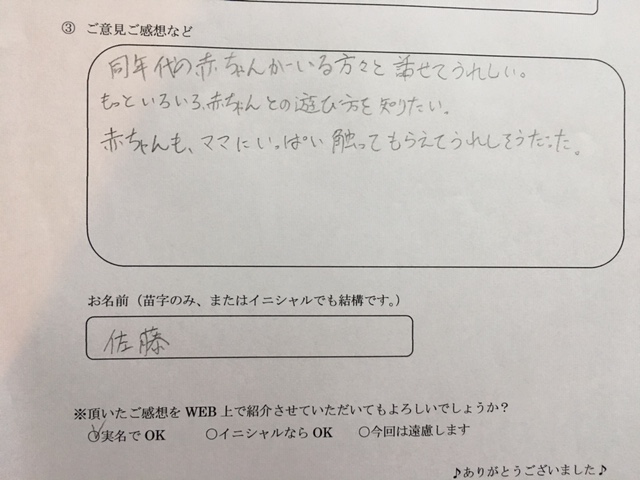 ③ ご意見ご感想など
同年代の赤ちゃんがいる方々と話せてうれしい。
もっといろいろ、赤ちゃんとの遊び方を知りたい。
赤ちゃんも、ママにいっぱい触ってもらえてうれしそうだった。
お名前（苗字のみ、またはイニシャルでも結構です。）
佐藤
※頂いたご感想を WEB 上で紹介させていただいてもよろしいでしょうか？
○実名で OK ○イニシャルなら OK ○今回は遠慮します
♪ありがとうございました♪